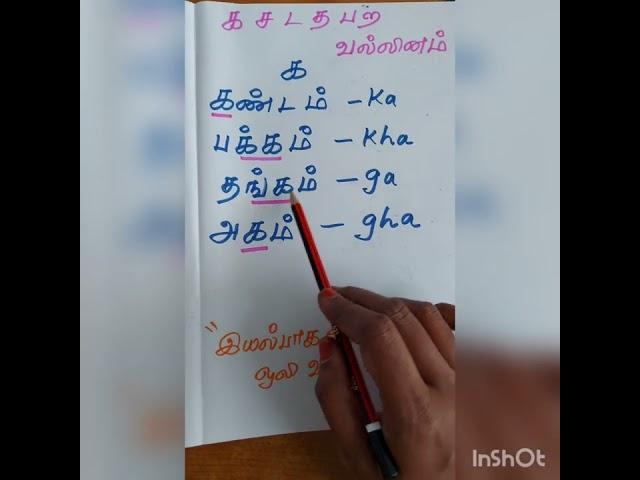 க ச ட த ப ற
வல்லினம்
க
கண்டம் – Ka
பக்கம் – Kha
தங்கம் – ga
அகம் – gha
"இயல்பாக
ஒலி
InShOt